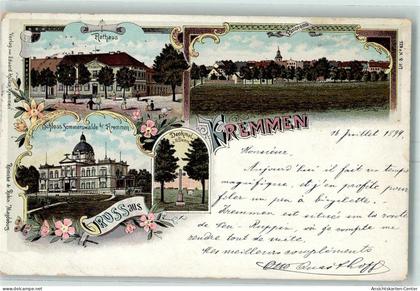 Rathaus
Panorama
Schloss Sommerswalde b/ Kremmen
Denkmal
Gruss aus
KREMMEN
13 Juillet 1899.
Monsieur.
Aujourd'hui il fait un temps
magnifique, et j'en profite pour
fêter un peu à bicyclette.
Kremmen est situé sur la route
de Neu Ruppin, où je compte me
rendre tout de suite.
Mes meilleurs compliments
Otto
Ansichtskarten-Center